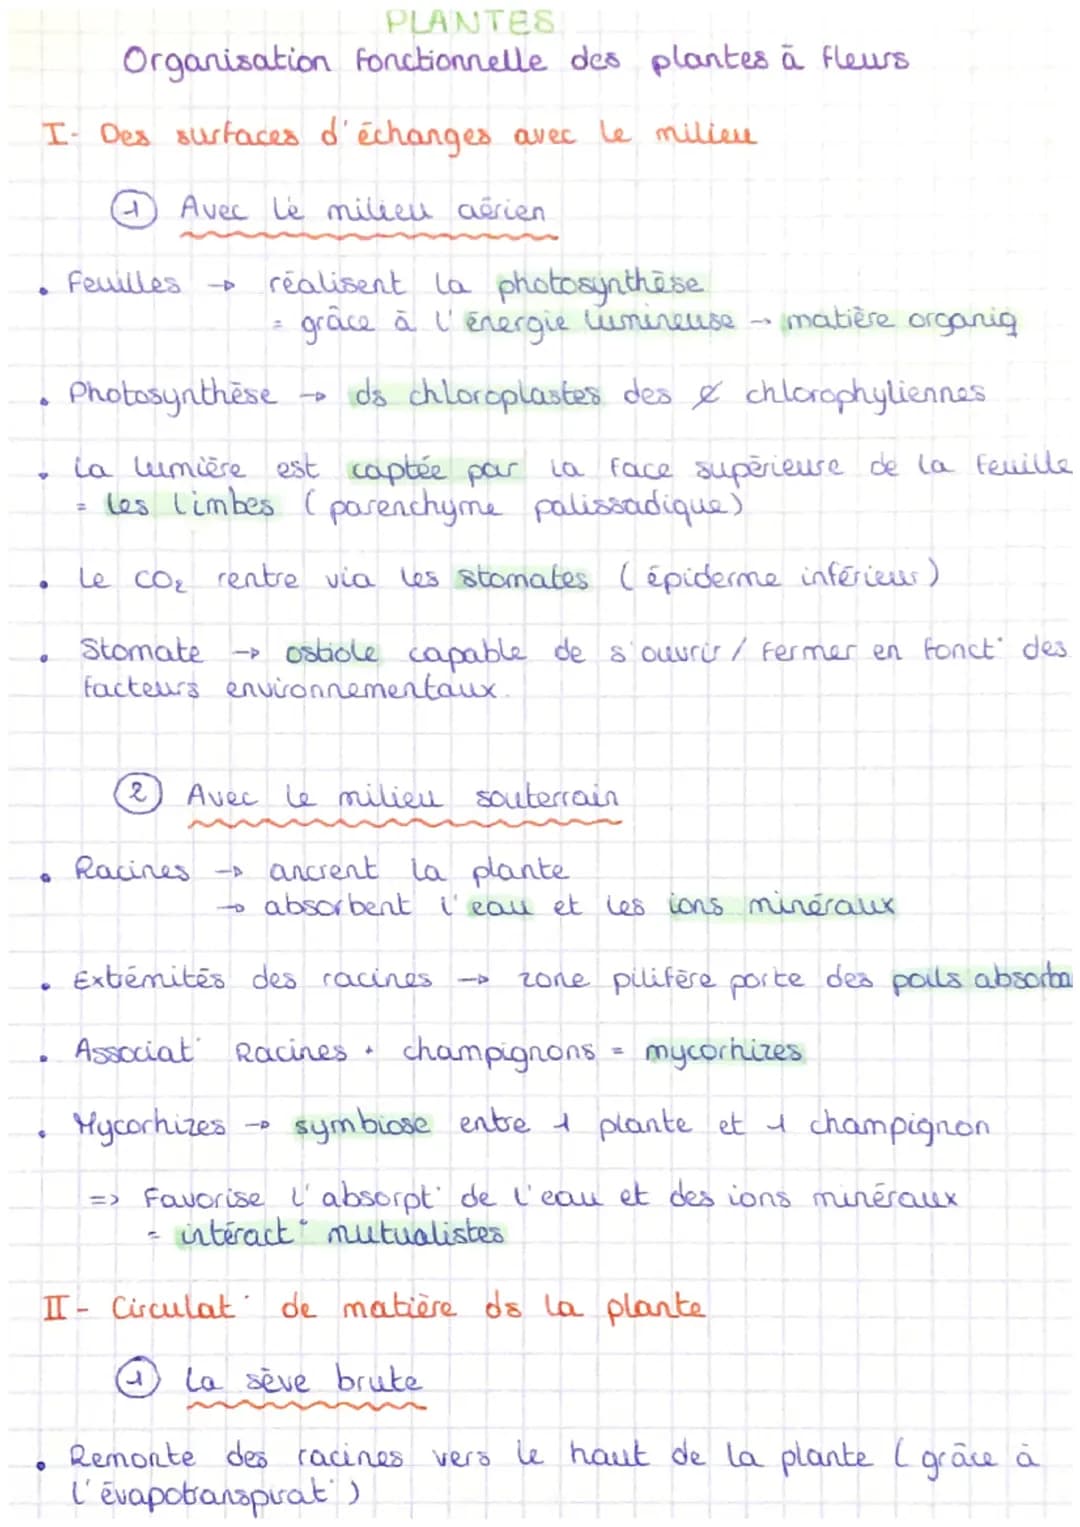 PLANTES
Organisation fonctionnelle des plantes à fleurs
I- Des surfaces d'échanges avec le milieu
1 Avec le milieu aérien
• Feuilles → réalisent la photosynthèse
= grâce à l'énergie lumineuse → matière organiq
• Photosynthèse → ds chloroplastes des ¢ chlorophyliennes
• La lumière est captée par la face supérieure de la feuille
= les limbes (parenchyme palissadique)
• Le CO₂ rentre via les stomates (épiderme inférieur)
• Stomate → ostiole capable de s'ouvrir / fermer en fonct° des
facteurs environnementaux.
2 Avec le milieu souterrain
• Racines → ancrent la plante
→ absorbent l'eau et les ions minéraux
• Extémités des racines → zone pilifère porte des poils absorba
• Associat° Racines + champignons = mycorhizes
• Mycorhizes → symbiose entre 1 plante et 1 champignon
=> Favorise l'absorpt° de l'eau et des ions minéraux
= intéract° mutualistes
II- Circulat° de matière ds la plante
1 La sève brute
• Remonte des racines vers le haut de la plante (grâce à
l'évapotranspirat°)